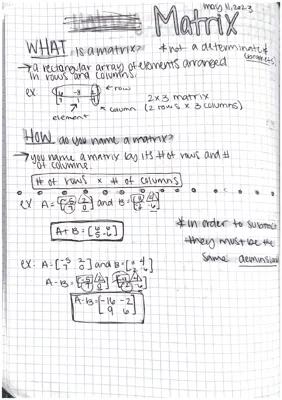 may 11, 2023
Matrix
WHAT is a matrix?
* not a determinate
(brackets)
→ a rectangular array of elements arranged
in rows and columns.
ex:
← row
element
column
2 x 3 matrix
(2 rows x 3 columns)
HOW do you name a matrix?
→ you name a matrix by its # of rows and #
of columns.
# of rows x # of columns
ex: A = and B =
A + B =
* in order to subtract
they must be the
same deminsions
ex: A = [-5 2
7 0] and B =
A - B =
A - B = [-16 -2
9 6]